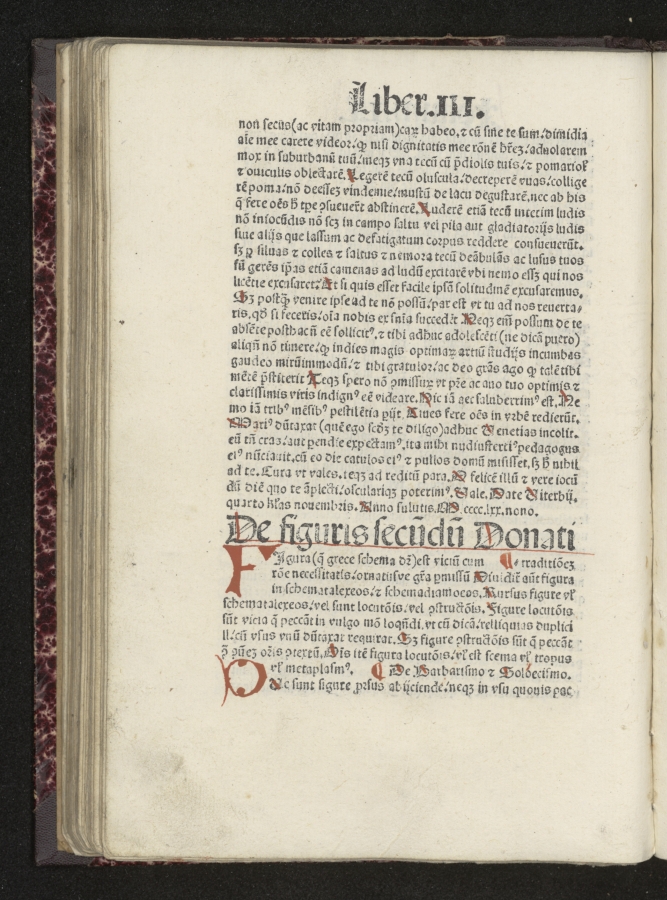 Liber.III.
non secus(ac vitam propriam)carā habeo.⁊ cū sine te sum/dimidia
aīe mee carere videor.ꝙ nisi dignitatis mee rōnē hēreȝ/aduolarem
mox in suburbanū tuū/ineqȝ vna tecū cū p̄diolis tuis/⁊ pomariolꝭ
⁊ ouiculis oblectarē.Legerē tecū oluscula/decreperē vuas/collige
rē poma/nō deesseȝ vindemie/mustū de lacu degustarē.nec ab his
ꝙ fere oēs h̄ tpe ꝯsueuerūt abstinerē.Luderē etiā tecū interim ludis
nō infocūdis nō scȝ in campo saltu vel pila aut gladiatorijs ludis
siue alijs que lassum ac defatigatum corpus reddere consueuerūt.
sȝ ꝑ siluas ⁊ colles ⁊ saltus ⁊ nemora tecū deābulās ac lusus tuos
sū gerēs ip̄as etiā camenas ad ludū excitarē vbi nemo essȝ qui nos
licētie excusaret.At si quis esset facile ipsā solitudinē excusaremus.
Sȝ postqꝫ venire ipse ad te nō possū/par est vt tu ad nos reuerta-
ris.qđ si feceris/oīa nobis ex snīa succedēt.Neqȝ eī̄ possum de te
absēte posthac nō eē sollicitꝰ.⁊ tibi adhuc adolescēti(ne dicā puero)
aliqn̄ nō timere/ꝙ indies magis optimaꝝ artiū studijs incumbas
gaudeo mirūimmodū/⁊ tibi gratulor/ac deo grās ago ꝙ talē tibi
mētē p̄stiterit Teqȝ spero nō ꝯmissuꝝ vt pr̄e ac auo tuo optimis ⁊
clarissimis viris indignꝰ eē videare.Hic iā aer saluberrimꝰ est.Ne
mo iā tribꝰ mēsibꝰ pestilētia pijt.Ciues fere oēs in vrbē redierūt.
Mariꝰ dūtaxat(quē ego scđȝ te diligo)adhuc Venetias incolit.
eū tn̄ cras/aut pendie expectamꝰ.ita mihi nudiusterciꝰpedagogus
eiꝰ nūciauit.cū eo die catulos eiꝰ ⁊ pullos domū misisset.sȝ h̄ nihil
ad te.Cura vt vales.teqȝ ad reditū para.O felicē illū ⁊ vere iocū
dū diē quo te āplecti/oscularicꝫ poterimꝰ.Vale.Date Viterbij.
quarto kl̄as nouembris.Anno salutis.M.cccc.lxx.nono.
De figuris secūdū Donati
Figura(q̄ grece schema dȓ)est viciū cum ¶- traditiōeȝ
rōe necessitatis/ornatusve gr̄a ꝑmissū Diuidiē aūt figura
in schematalexeos/⁊ schemadianoeos.Rursus figure vł
schematalexeos/vel sunt locutōis/vel ꝯstructōis.Figure locutōis
sūt vicia q̄ peccāt in vulgo mō loqn̄di.vt cū dicā/relliquias duplici
ll.cū vsus vnū dūtaxat requirat.Sȝ figure ꝯstructōis sūt q̄ peccāt
ꝯ p̄ueȝ orōis ꝯtextū.His itē figura locutōis/vł est scema vł tropus
vł metaplasmꝰ. ¶ De Barbarismo ⁊ Soloecismo.
Nec sunt figure prsus abijciende/neqȝ in vsu quouis pac